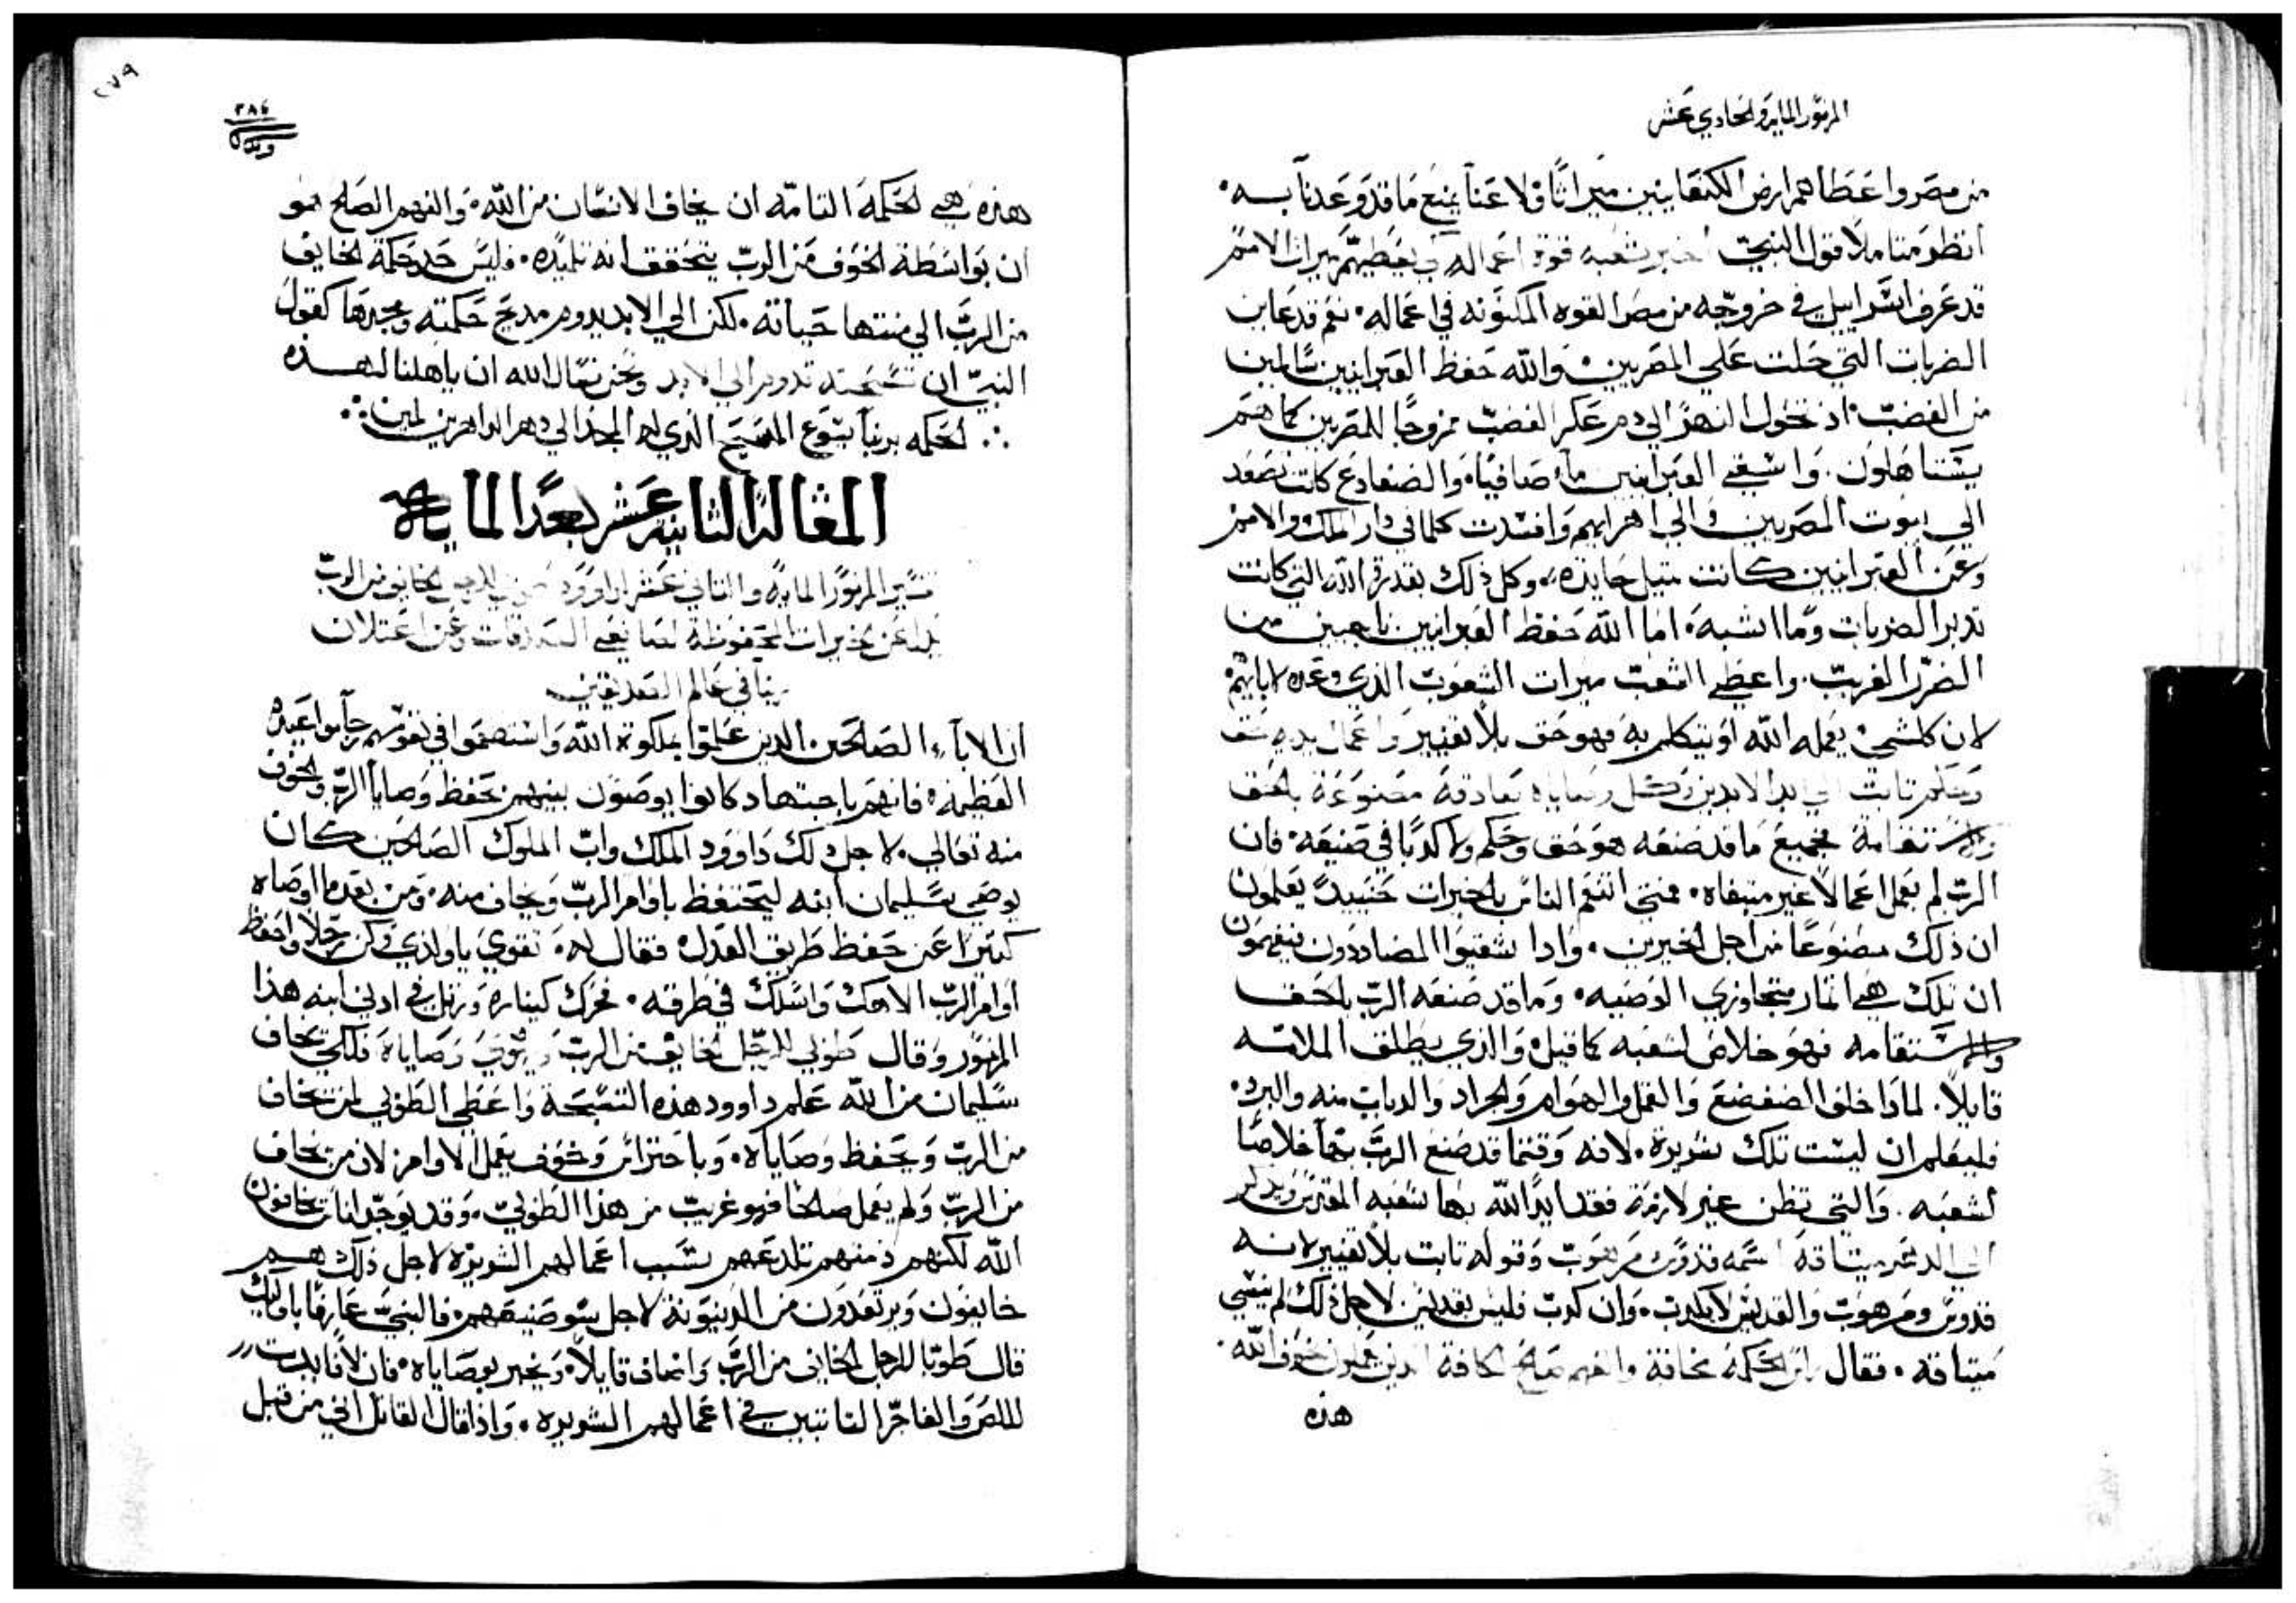 المزمور الماية والحادي عشر
من مصر واعطاهم ارض الكنعانيين ميراثا ولا عنا يمنع ما قد وعدنا به.
انظر متاملا قول النبي اخبر شعبه قوة اعماله في يعطيهم ميراث الامم
قد عرف اسراييل في خروجه من مصر القوه المكنونه في اعماله. نعم قد عاين
الضربات التي حلت علي المصريين. والله حفظ العبرانيين سالمين
من الغضب. اذ تحول النهر الي دم عكر الغضب ممزوجا للمصريين كما هم
يستاهلون. واسقي العبرانيين ماء صافيا. والضفادع كانت تصعد
الي بيوت المصريين والي اهرايهم وافسدت كلما في دار الملك والامم
وعن العبرانيين كانت حايده. وكل ذلك بقدرة الله التي كانت
تدبر الضربات وما اشبه. اما الله حفظ العبرانيين ناجيين من
الضرر الغريب. واعطي الشعب ميرات الشعوب الذي وعد لابايهم
لان كلشي يعمله الله او يتكلم به فهو حق بلا تغيير واعمال يديه حق
وحكم ثابت الي ابد الابدين وكل وصاياه صادقة مصنوعة بالحق
والاستقامة جميع ما قد صنعه هو حق وحكم ولا كدبا في صنيعه. فان
الرب لم يعمل اعمالا غير متبقاه. فمتي انتعم الناس بالخيرات حنييد يعلمون
ان ذلك مصنوعا من اجل الخيرين. وادا شقيوا المضاددون يفهمون
ان تلك هي اتمار متجاوزي الوصيه. وما قد صنعه الرب بالحق
والاستقامه فهو خلاص لشعبه كما قيل. والذي يطلق الملامه
قايلا. لماذا خلق الضفضع والقمل والهوام والجراد والدباب منه والبرد.
فليعلم ان ليست تلك شريرة. لانه وقتما قد صنع الرب بها خلاصا
لشعبه. والتي تظن غير لازمة فقد ايد الله بها شعبه
الي الدهر ميتاقه اسمه قدوس مرهوب وقوله تابت بلا تغيير لانه
قدوس ومرهوب والقديس لا يكدب. وان كدب فليس بقديس لاجل ذلك لم ينسي
ميتاقه. فقال راس الحكمة مخافة والفهم صالح لكافة الذين يعملون خوف الله.
هذه
٢٧٩
٣٨٤
هذه هي الحكمة التامه ان يخاف الانسان من الله. والفهم الصالح هو
ان بواسطة الخوف من الرب يتحقق انه تلميده. فليس حد حكمة الخايف
من الرب الي منتها حياته. لكن الي الابد يدوم مديح حكمته ومجدها كقول
النبي ان تسبحته تدوم الي الابد ونحن نسال الله ان ياهلنا لهذه
الحكمه بربنا يسوع المسيح الذي له المجد الي دهر الداهرين امين
المقالة الثانية عشر بعد الماية
تفسير المزمور الماية والتاني عشر لداوود طوبي للرجل الخايف من الرب
بدا عن الخيرات المحفوظة لصانعي الصدقات وعن اعتلان
ربنا في عالم القديسين
ان الاباء الصالحين الدين علموا بملكوة الله واستضموا في نفوسهم رجا مواعيده
العظيمه. فانهم باجتهاد كانوا يوصون بنيهم بحفظ وصايا الرب والخوف
منه تعالي. لاجل دلك داوود الملك واب الملوك الصالحين كان
يوصي سليمان ابنه ليحتفظ باوامر الرب ويخاف منه. ومن بعد ما اوصاه
كتيرا عن حفظ طريق العدل. فقال له. تقوي يا ولدي وكن رجلا واحفظ
اوامر الرب الاهك واسلك في طرقه. فحرك كينارة ورتل في ادني ابنه هذا
المزمور وقال طوبي للرجل الخايف من الرب ويهوي وصاياه فلكي يخاف
سليمان من الله علم داوود هذه التسبحة واعطي الطوبي لمن يخاف
من الرب ويحفظ وصاياه. وباحتراس وخوف يعمل الاوامر لان من يخاف
من الرب ولم يعمل صالحا فهو غريب من هذا الطوبي. وقد يوجد اناس يخافون
الله لكنهم ذمتهم تلدعهم بسبب اعمالهم الشريره لاجل ذلك هم
خايفون ويرتعدون من الدينونة لاجل سو صنيعهم. فالنبي عارفا باوليك
قال طوبا للرجل الخايف من الرب واضاف قايلا. ويخبر بوصاياه. فان لا فايدت
للص والفاجر التابتين في اعمالهم الشريره. واذا قال القائل اني من قبل